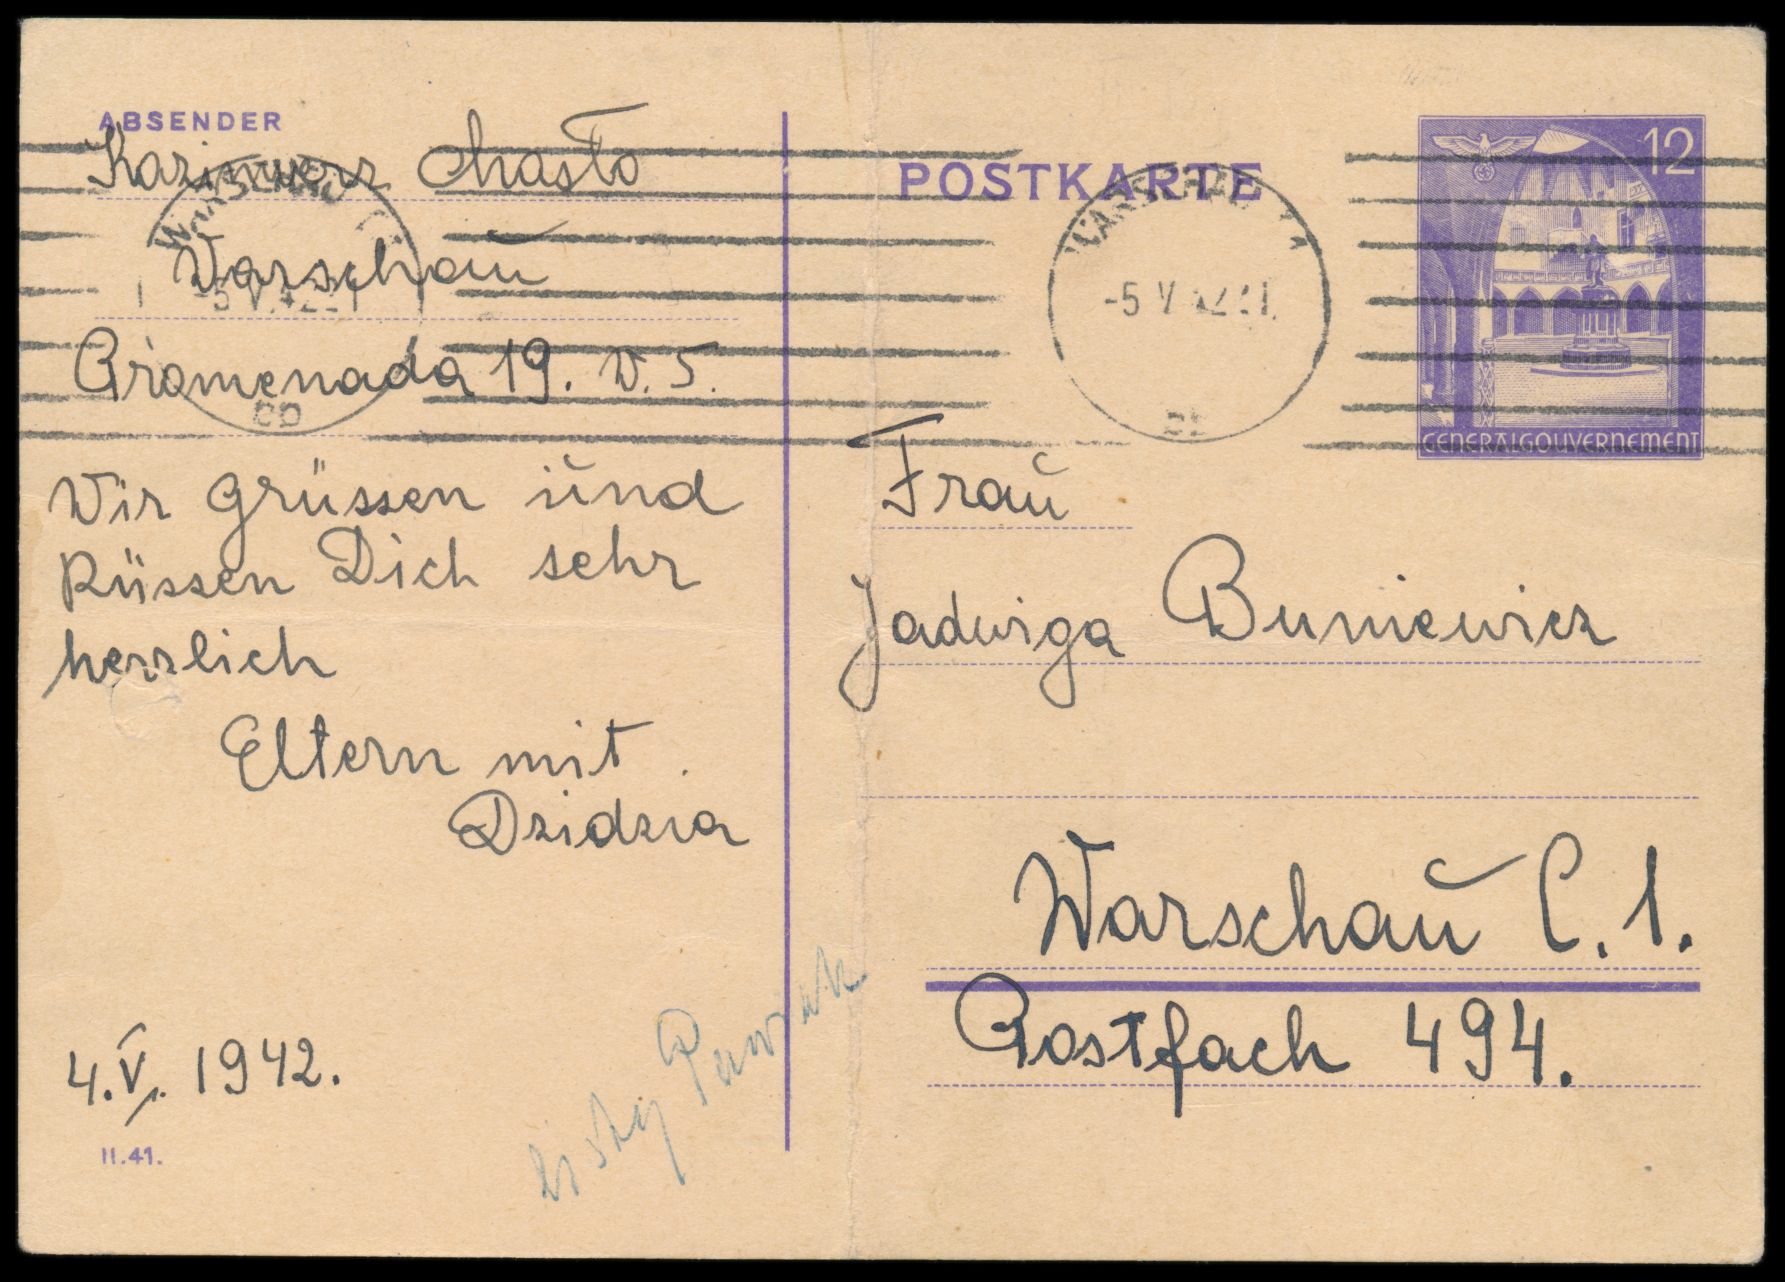 ABSENDER
Kazimierz Masło
Warschau
Promenada 19. W. 5.
Wir grüssen und
küssen Dich sehr
herzlich
Eltern mit
Dzidzia
4.V. 1942.
II.41.
listy Pawiak
POSTKARTE
WARSCHAU
-5 V 42 21
12
GENERALGOUVERNEMENT
Frau
Jadwiga Buniewicz
Warschau C. 1.
Postfach 494.